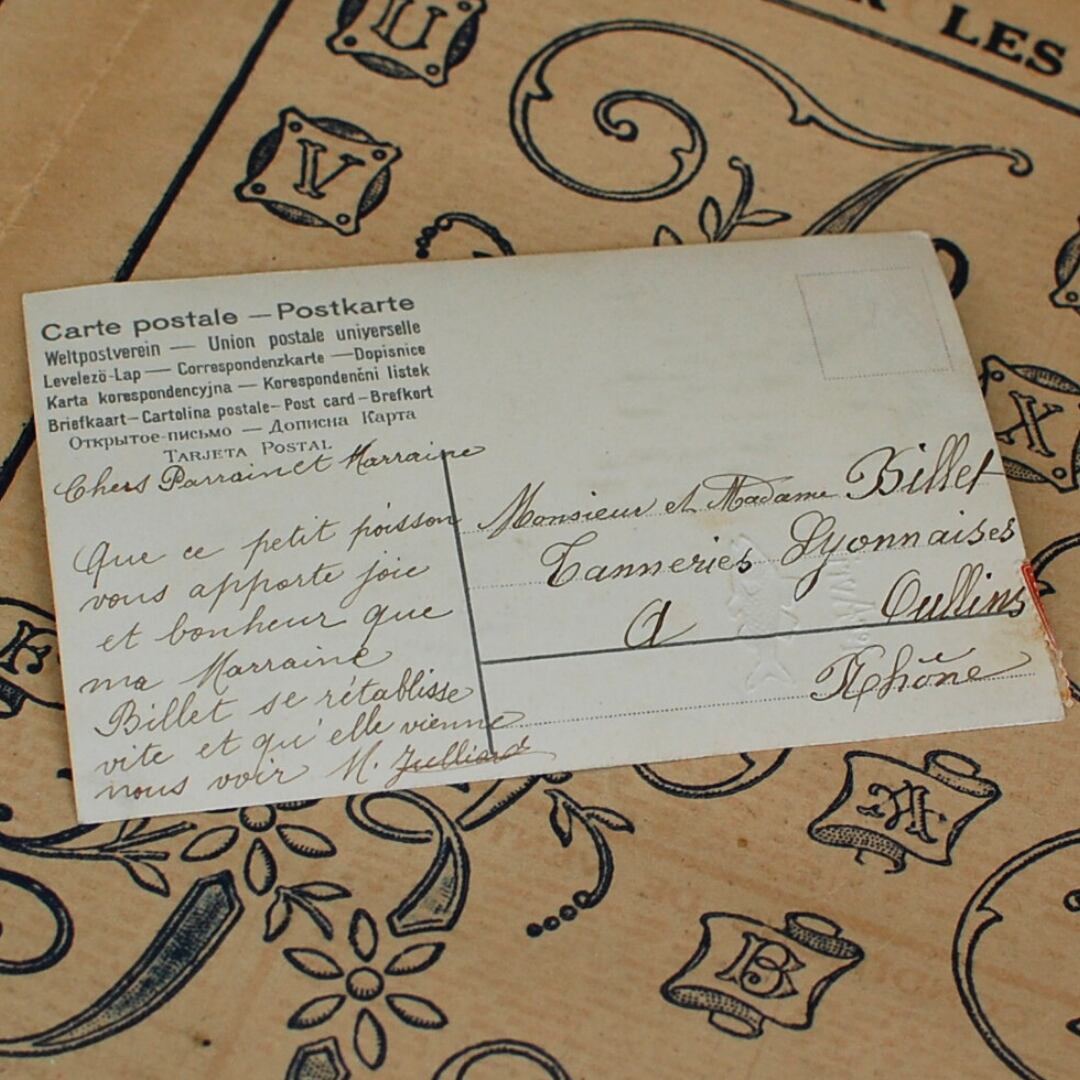 LES
U
V
X
Carte postale — Postkarte
Weltpostverein — Union postale universelle
Levelezö-Lap — Correspondenzkarte — Dopisnice
Karta korespondencyjna — Korespondenční listek
Briefkaart — Cartolina postale — Post card — Brefkort
Открытое-письмо — Дописна Карта
TARJETA POSTAL
Chers Parrain et Marraine
Que ce petit poisson
vous apporte joie
et bonheur que
ma Marraine
Billet se rétablisse
vite et qu'elle vienne
nous voir M. Julliard
Monsieur et Madame Billet
Tanneries Lyonnaises
A Oullins
Rhône
B